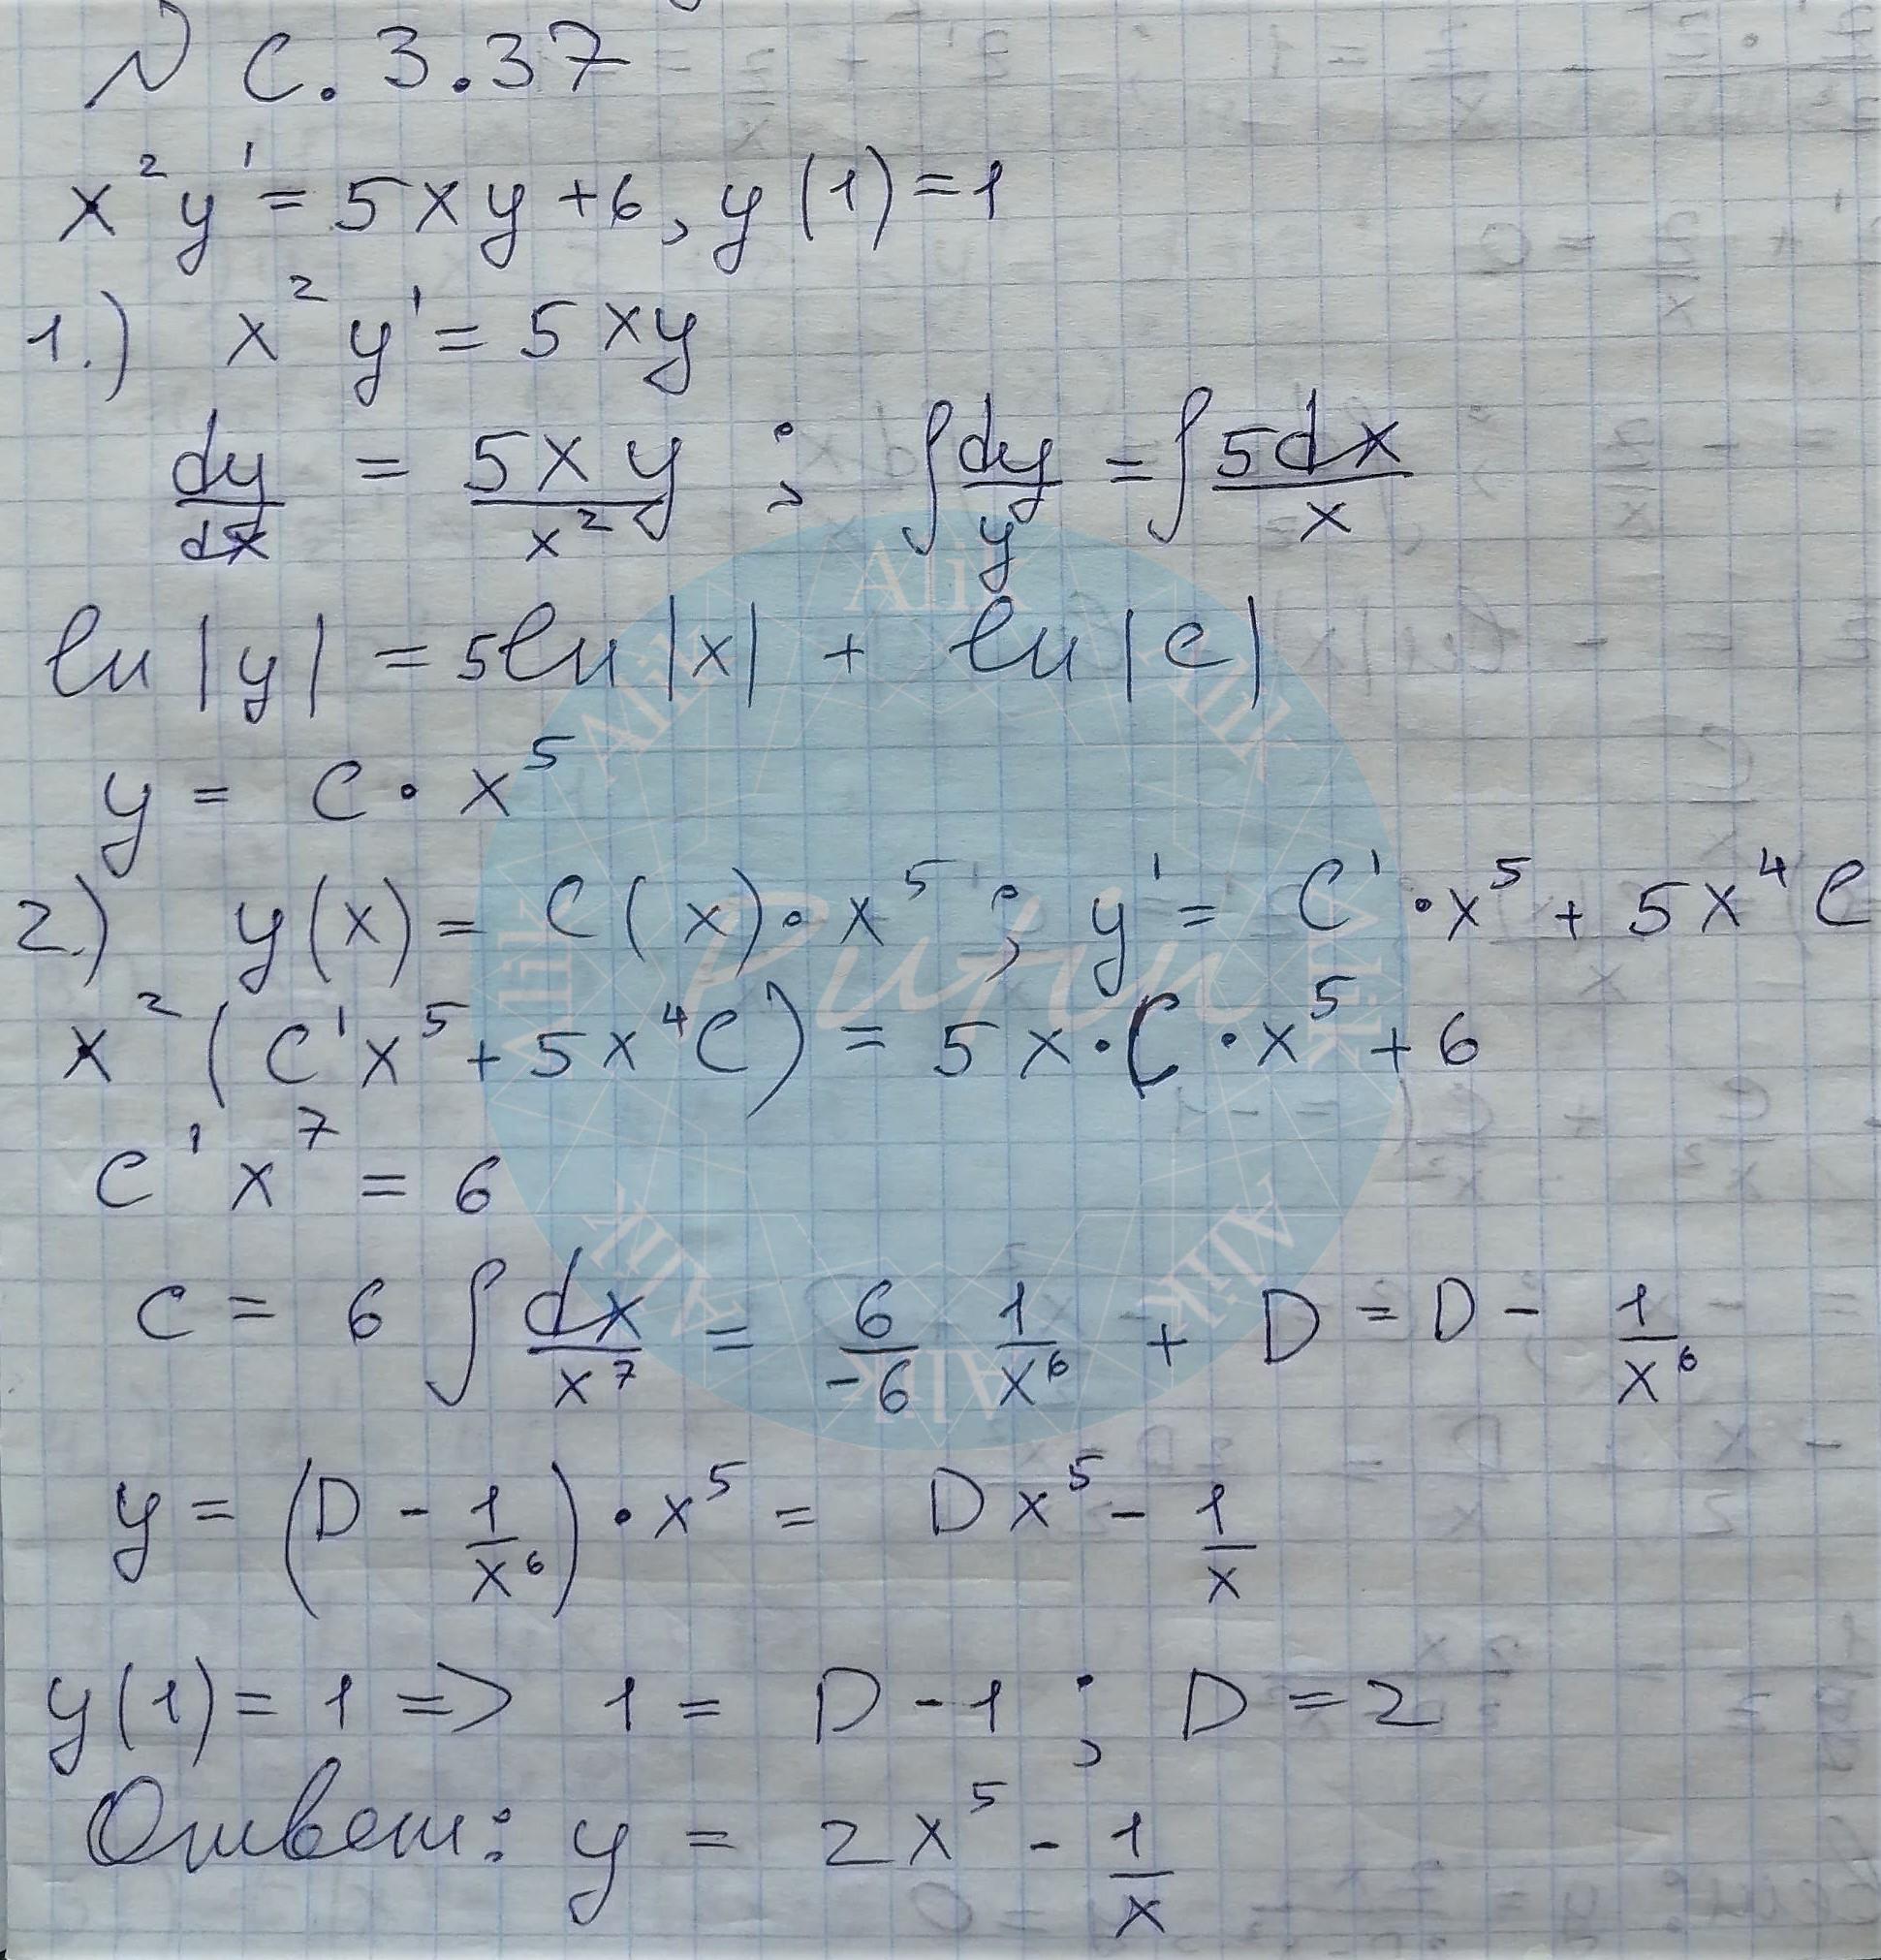 N C.3.37
x²y' = 5xy + 6, y(1) = 1
1.) x²y' = 5xy
dy/dx = 5xy/x² ; ∫dy/y = ∫5dx/x
ln|y| = 5ln|x| + ln|C|
y = C·x⁵
2.) y(x) = C(x)·x⁵ ; y' = C'·x⁵ + 5x⁴C
x²(C'x⁵ + 5x⁴C) = 5x·C·x⁵ + 6
C'x⁷ = 6
C = 6∫dx/x⁷ = 6/-6 1/x⁶ + D = D - 1/x⁶
y = (D - 1/x⁶)·x⁵ = Dx⁵ - 1/x
y(1) = 1 => 1 = D - 1 ; D = 2
Ответ: y = 2x⁵ - 1/x
Alik Alik Alik Alik Alik Alik Alik Alik